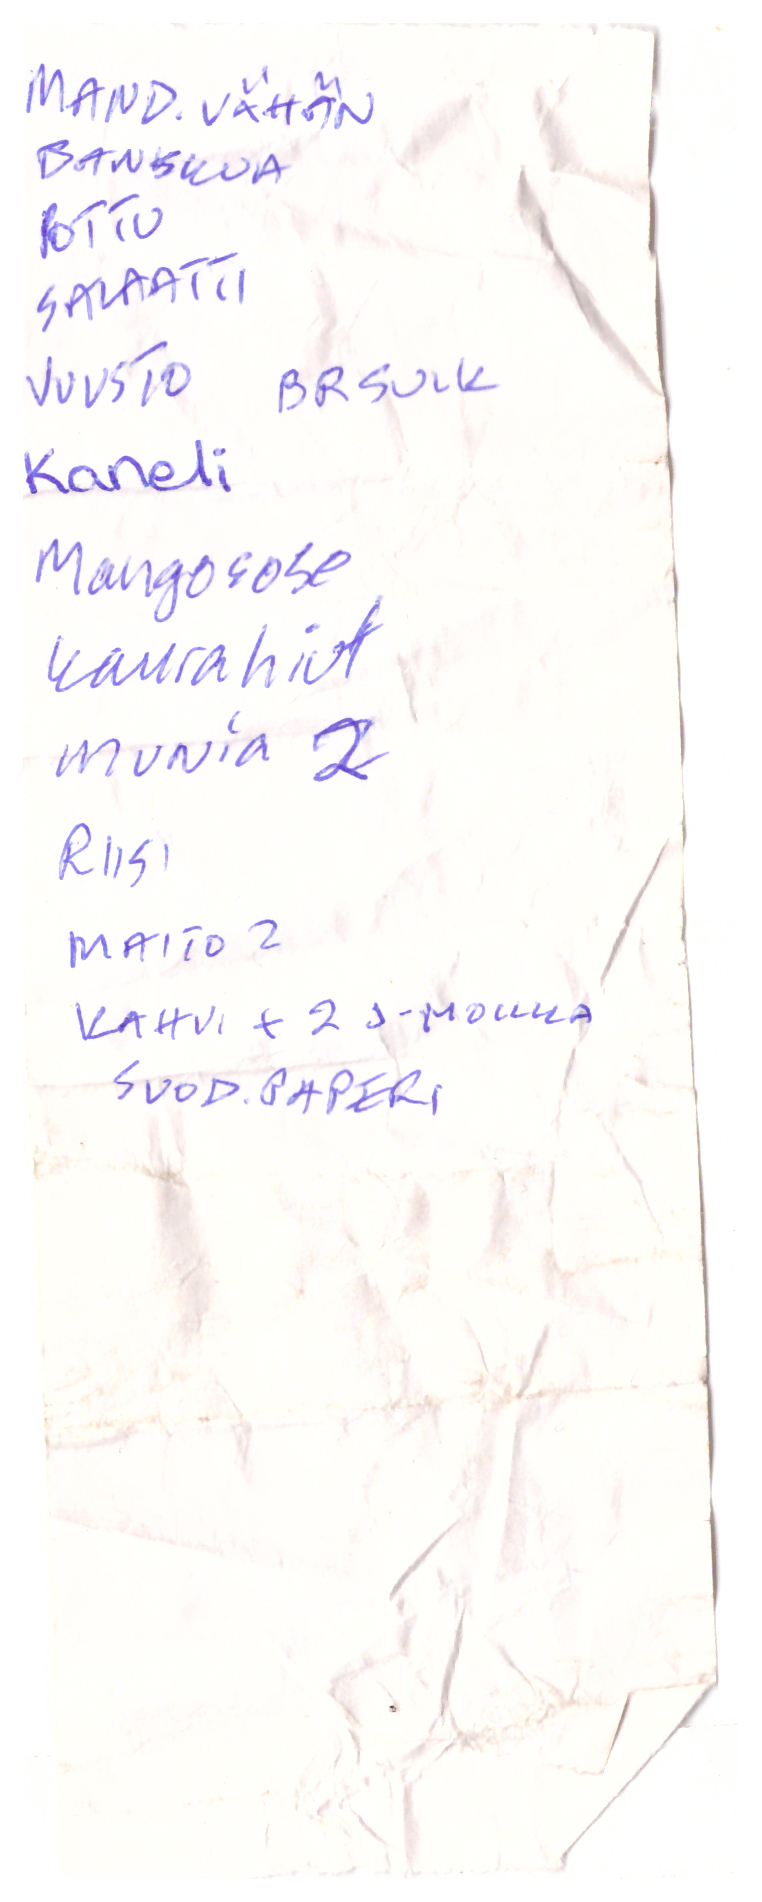 MAND. VÄHÄN
BANSKUA
POTTU
SALAATTI
JUUSTO BRSULK
Kaneli
Mangosose
Kaurahiut
MUNIA 2
RIISI
MAITO 2
KAHVI + 2 J-MOKKA
SUOD. PAPERI